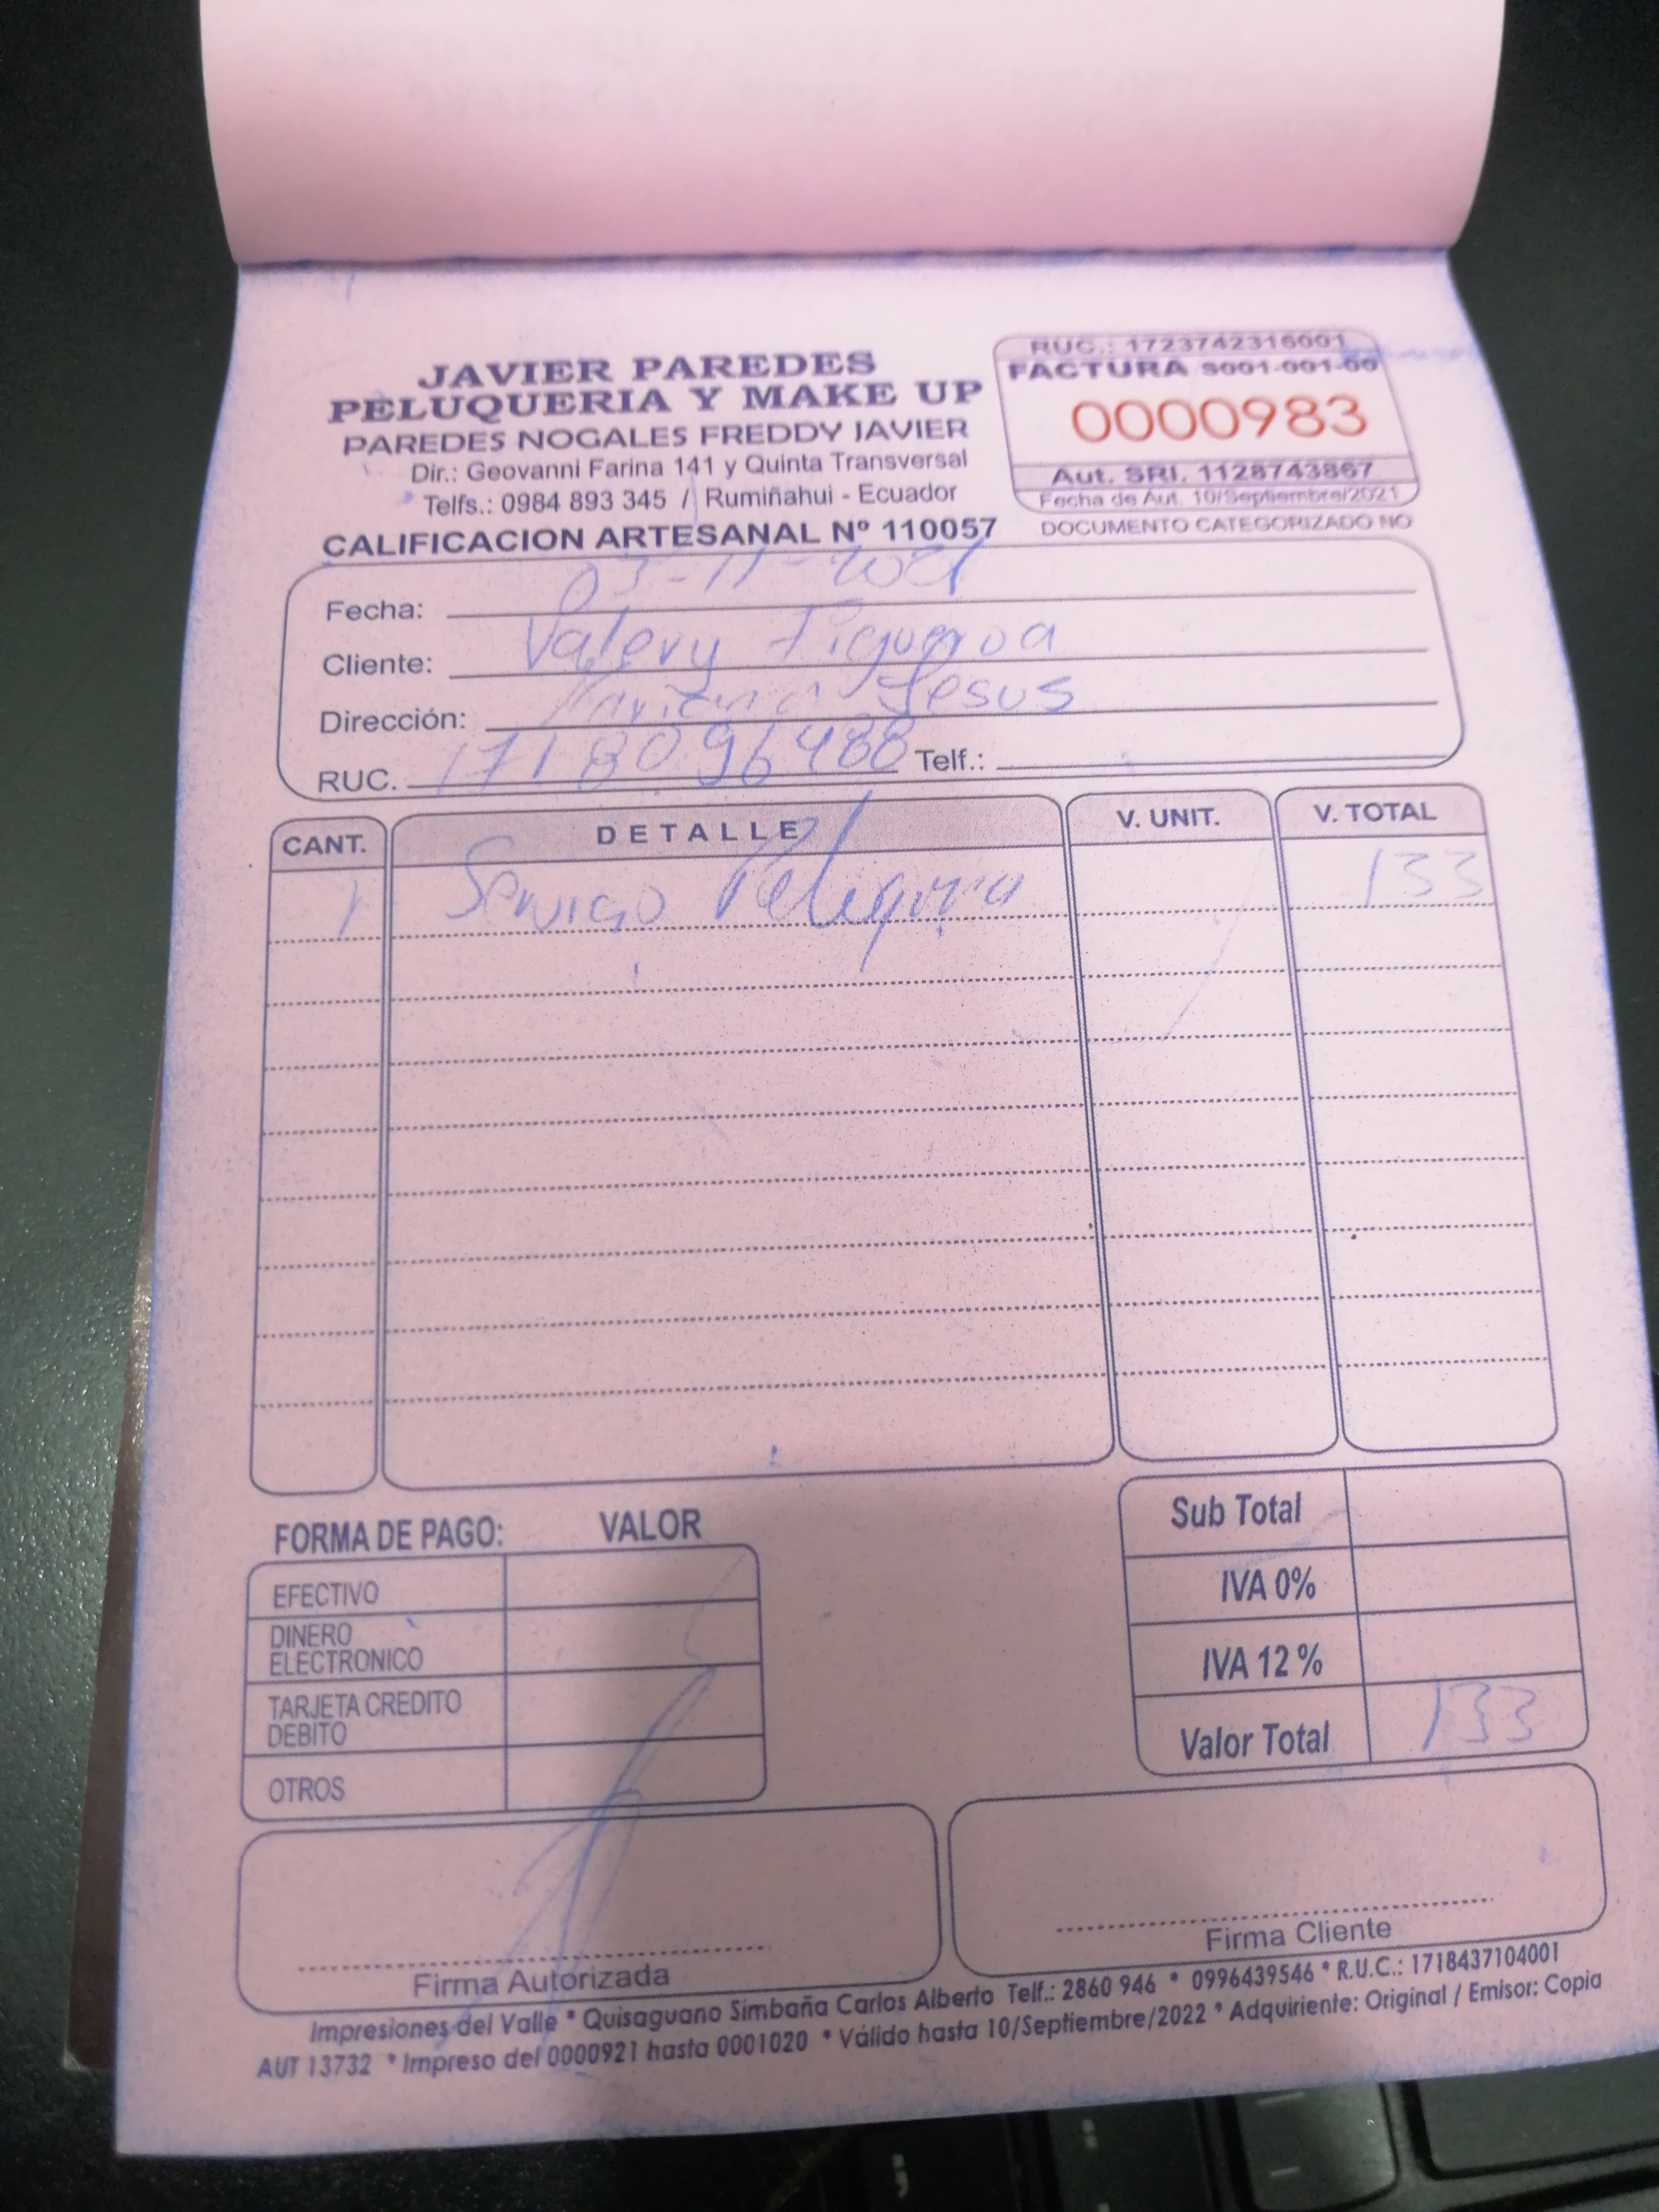 JAVIER PAREDES
PELUQUERIA Y MAKE UP
PAREDES NOGALES FREDDY JAVIER
Dir.: Geovanni Farina 141 y Quinta Transversal
Telfs.: 0984 893 345 / Rumiñahui - Ecuador
CALIFICACION ARTESANAL Nº 110057
RUC.: 1723742316001
FACTURA S001-001-00
0000983
Aut. SRI. 1128743867
Fecha de Aut. 10/Septiembre/2021
DOCUMENTO CATEGORIZADO NO
Fecha: 03-11-2021
Cliente: Valery Figueroa
Dirección: Jesus
RUC. 1718096488 Telf.:
CANT. DETALLE V. UNIT. V. TOTAL
1 Servicio 133
FORMA DE PAGO: VALOR
EFECTIVO
DINERO
ELECTRONICO
TARJETA CREDITO
DEBITO
OTROS
Sub Total
IVA 0%
IVA 12 %
Valor Total 133
Firma Autorizada
Firma Cliente
Impresiones del Valle * Quisaguano Simbaña Carlos Alberto Telf.: 2860 946 * 0996439546 * R.U.C.: 1718437104001
AUT 13732 * Impreso del 0000921 hasta 0001020 * Válido hasta 10/Septiembre/2022 * Adquiriente: Original / Emisor: Copia